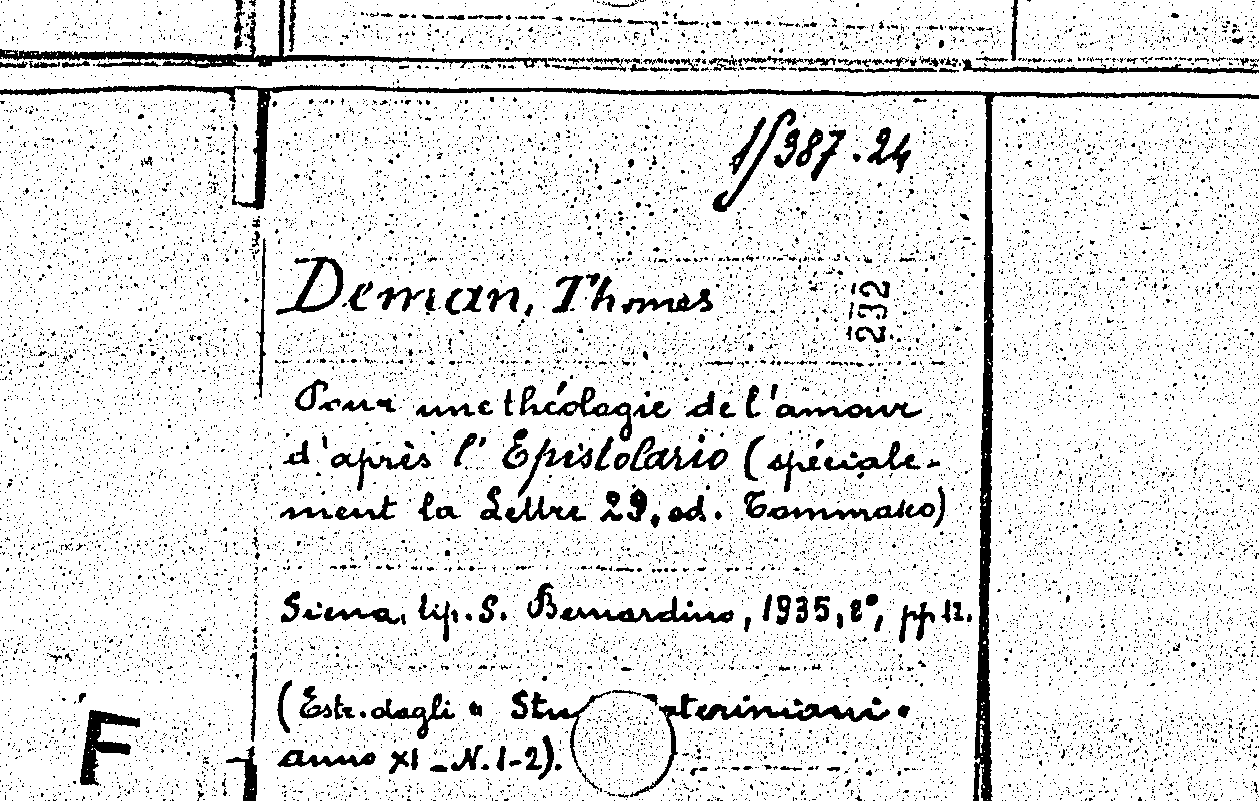 387.24
Deman, Thomas
232
Pour une théologie de l'amour
d'après l'Epistolario (spéciale-
ment la Lettre 29, ed. Tommaseo)
Siena, tip. S. Bernardino, 1935, 8°, pp. 12.
(Estr. dagli « Stu ateriniani »
anno XI - N. 1-2).
F